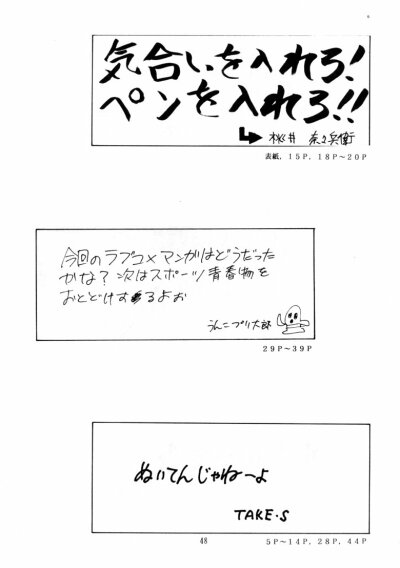 気合いを入れろ!
ペンを入れろ!!
桃井 奈々兵衛
表紙, 15P, 18P〜20P
今回のラブコメマンガはどうだった
かな? 次はスポーツ青春物を
おとどけするよぉ
うんこプリ太郎
29P〜39P
ぬいてんじゃねーよ
TAKE・S
48
5P〜14P, 28P, 44P